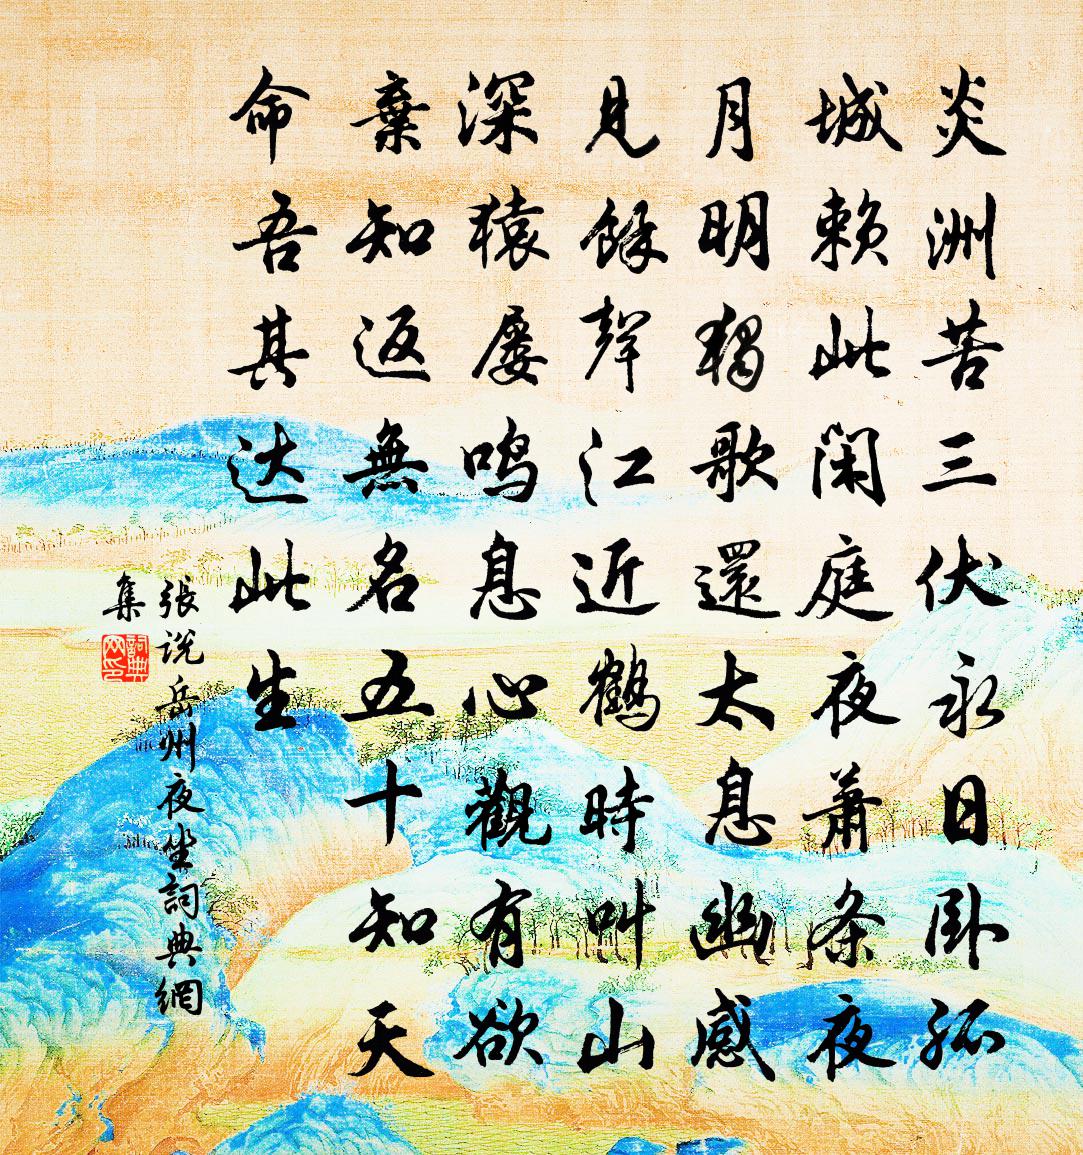 炎洲苦三伏永日卧孤
城赖此闲庭夜萧条夜
月明独歌還太息幽感
見餘聲江近鶴時叫山
深猿屡鸣息心觀有欲
棄知返無名五十知天
命吾其达此生
張说岳州夜坐詞典網
集